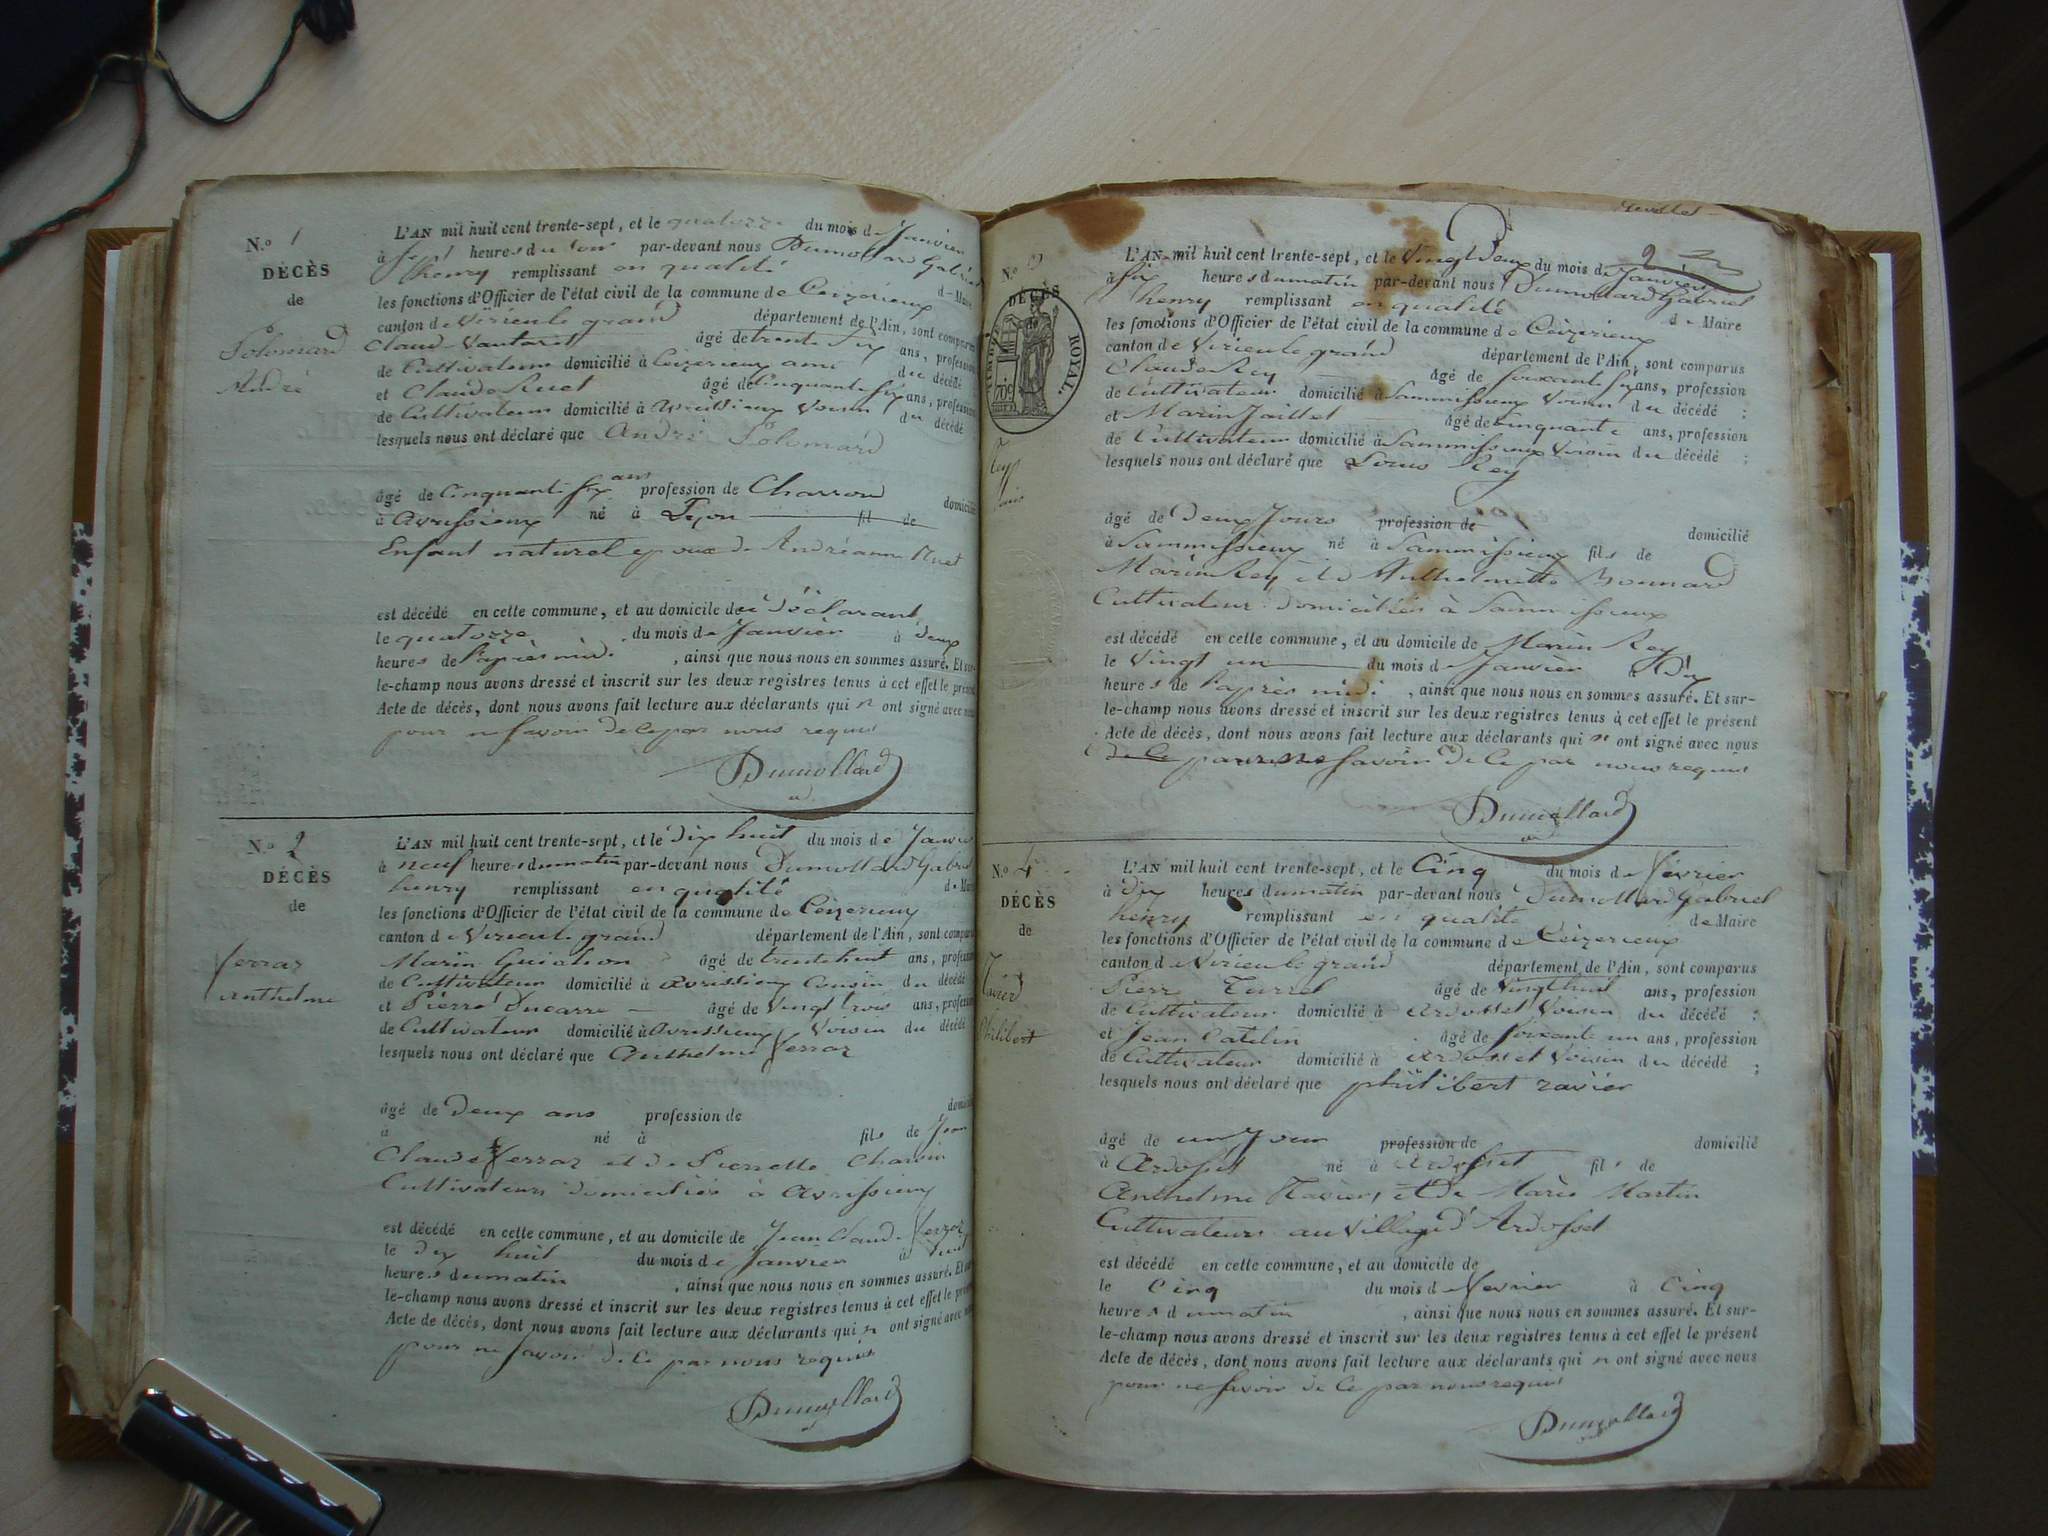 N.º 1
DÉCÈS
de
Polomard
André
L'AN mil huit cent trente-sept, et le quatorze du mois de Janvier
à heures du soir par-devant nous Dumollard Gabriel
henry remplissant en qualité de Maire
les fonctions d'Officier de l'état civil de la commune de Ceizerieux
canton de Virieu le grand département de l'Ain, sont comparus
Claude Vautaret âgé de trente six ans, profession
de Cultivateur domicilié à Ceizerieux ami du décédé
et Claude Ruet âgé de Cinquante six ans, profession
de Cultivateur domicilié à Avrissieux Voisin du décédé
lesquels nous ont déclaré que André Polomard
âgé de Cinquante six ans profession de Charron domicilié
à Avrissieux né à Lyon fil de
Enfant naturel epoux de Andréanne Ruet
est décédé en cette commune, et au domicile du déclarant
le quatorze du mois de Janvier à deux
heures de l'après midi, ainsi que nous nous en sommes assuré. Et sur-
le-champ nous avons dressé et inscrit sur les deux registres tenus à cet effet le présent
Acte de décès, dont nous avons fait lecture aux déclarants qui n ont signé avec nous
pour ne savoir de ce par nous requis
Dumollard
N.º 2
DÉCÈS
de
Ferraz
Anthelme
L'AN mil huit cent trente-sept, et le dix huit du mois de Janvier
à neuf heures du matin par-devant nous Dumollard Gabriel
henry remplissant en qualité de Maire
les fonctions d'Officier de l'état civil de la commune de Ceizerieux
canton de Virieu le grand département de l'Ain, sont comparus
Marin âgé de trente huit ans, profession
de Cultivateur domicilié à Avrissieux Cousin du décédé
et Pierre Ducarre âgé de Vingt trois ans, profession
de Cultivateur domicilié à Avrissieux Voisin du décédé
lesquels nous ont déclaré que Anthelme Ferraz
âgé de Deux ans profession de domicilié
à né à fils de Jean
Claude Ferraz et de Pierrette Charvin
Cultivateurs domiciliés à Avrissieux
est décédé en cette commune, et au domicile de Jean Claude Ferraz
le dix huit du mois de Janvier à
heures du matin, ainsi que nous nous en sommes assuré. Et sur-
le-champ nous avons dressé et inscrit sur les deux registres tenus à cet effet le présent
Acte de décès, dont nous avons fait lecture aux déclarants qui n ont signé avec nous
pour ne savoir de ce par nous requis
Dumollard
2
N.º
DÉCÈS
TIMBRE ROYAL.
70c
Rey
Louis
L'AN mil huit cent trente-sept, et le Vingt Deux du mois de Janvier
à six heures du matin par-devant nous Dumollard Gabriel
henry remplissant en qualité de Maire
les fonctions d'Officier de l'état civil de la commune de Ceizerieux
canton de Virieu le grand département de l'Ain, sont comparus
Claude Rey âgé de soixante six ans, profession
de Cultivateur domicilié à Sammissieux Voisin du décédé ;
et Marin Jaillet âgé de Cinquante ans, profession
de Cultivateur domicilié à Sammissieux Voisin du décédé ;
lesquels nous ont déclaré que Louis Rey
âgé de Deux Jours profession de domicilié
à Sammissieux né à Sammissieux fils de
Marin Rey et d Anthelmette Bonnard
Cultivateurs domiciliés à Sammissieux
est décédé en cette commune, et au domicile de Marin Rey
le Vingt un du mois de Janvier à Dix
heures de l'après midi, ainsi que nous nous en sommes assuré. Et sur-
le-champ nous avons dressé et inscrit sur les deux registres tenus à cet effet le présent
Acte de décès, dont nous avons fait lecture aux déclarants qui n ont signé avec nous
de ce pour ne savoir de ce par nous requis
Dumollard
N.º 4
DÉCÈS
de
Ravier
Philibert
L'AN mil huit cent trente-sept, et le Cinq du mois de Février
à dix heures du matin par-devant nous Dumollard Gabriel
henry remplissant en qualité de Maire
les fonctions d'Officier de l'état civil de la commune de Ceizerieux
canton de Virieu le grand département de l'Ain, sont comparus
Pierre Turrel âgé de Vingt huit ans, profession
de Cultivateur domicilié à Ardosset Voisin du décédé ;
et Jean Catelin âgé de soixante un ans, profession
de Cultivateur domicilié à Ardosset Voisin du décédé ;
lesquels nous ont déclaré que philibert ravier
âgé de un Jour profession de domicilié
à Ardosset né à Ardosset fils de
Anthelme Ravier, et de Marie Martin
Cultivateurs au Village d'Ardosset
est décédé en cette commune, et au domicile de
le Cinq du mois de Fevrier à Cinq
heures du matin, ainsi que nous nous en sommes assuré. Et sur-
le-champ nous avons dressé et inscrit sur les deux registres tenus à cet effet le présent
Acte de décès, dont nous avons fait lecture aux déclarants qui n ont signé avec nous
pour ne savoir de ce par nous requis
Dumollard